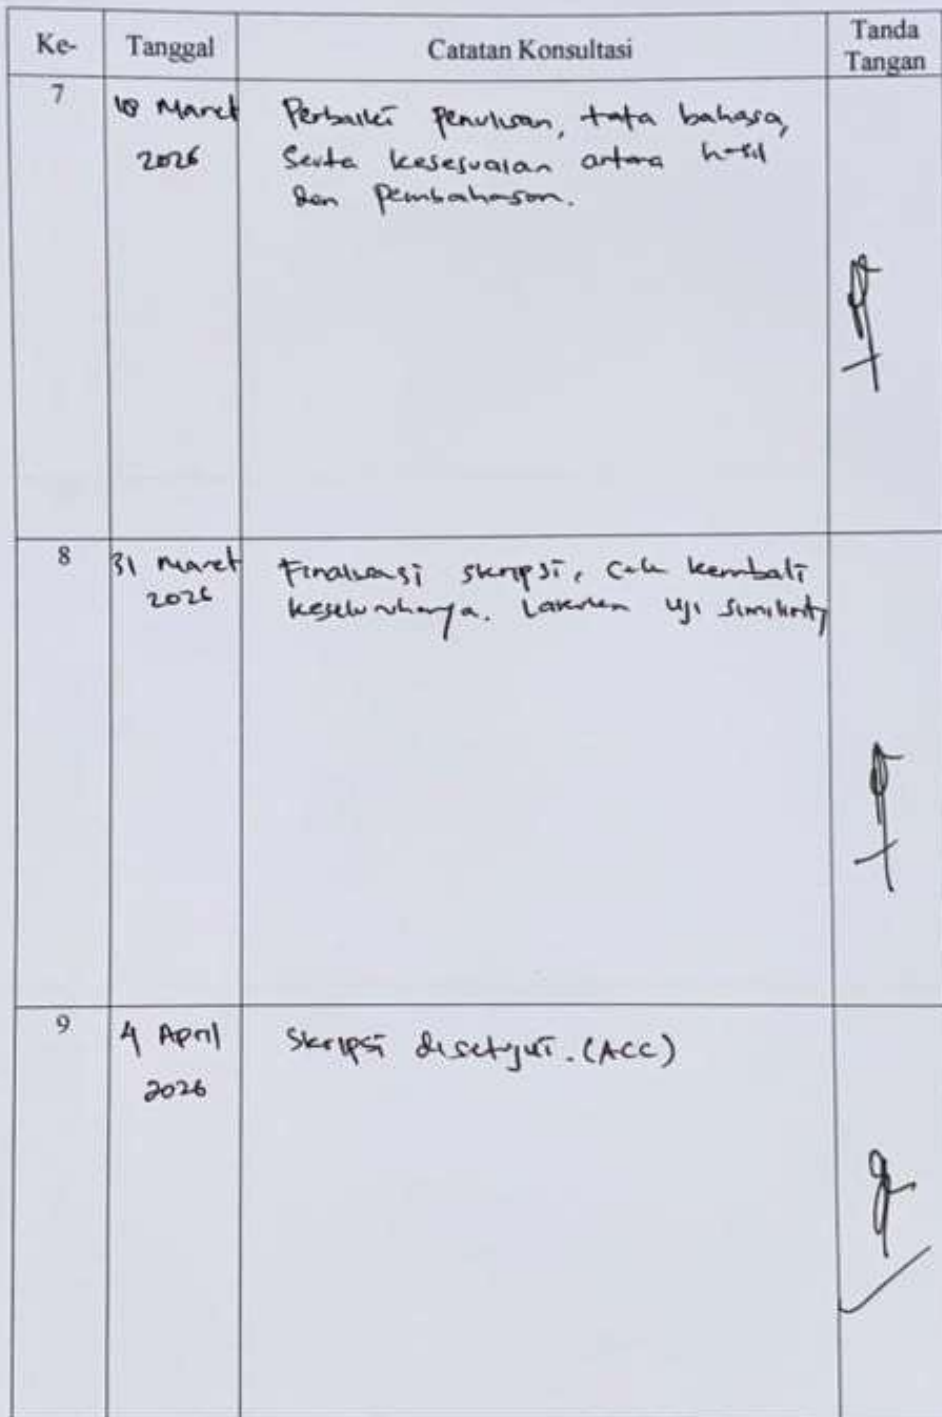 Ke-
Tanggal
Catatan Konsultasi
Tanda
Tangan
7
18 Maret
2026
Perbaiki penulisan, tata bahasa,
Serta kesesuaian antara hasil
dan Pembahasan.
8
31 Maret
2026
Finalisasi skripsi, cek kembali
keseluruhannya. Lakukan uji similarity
9
4 April
2026
Skripsi disetujui. (ACC)